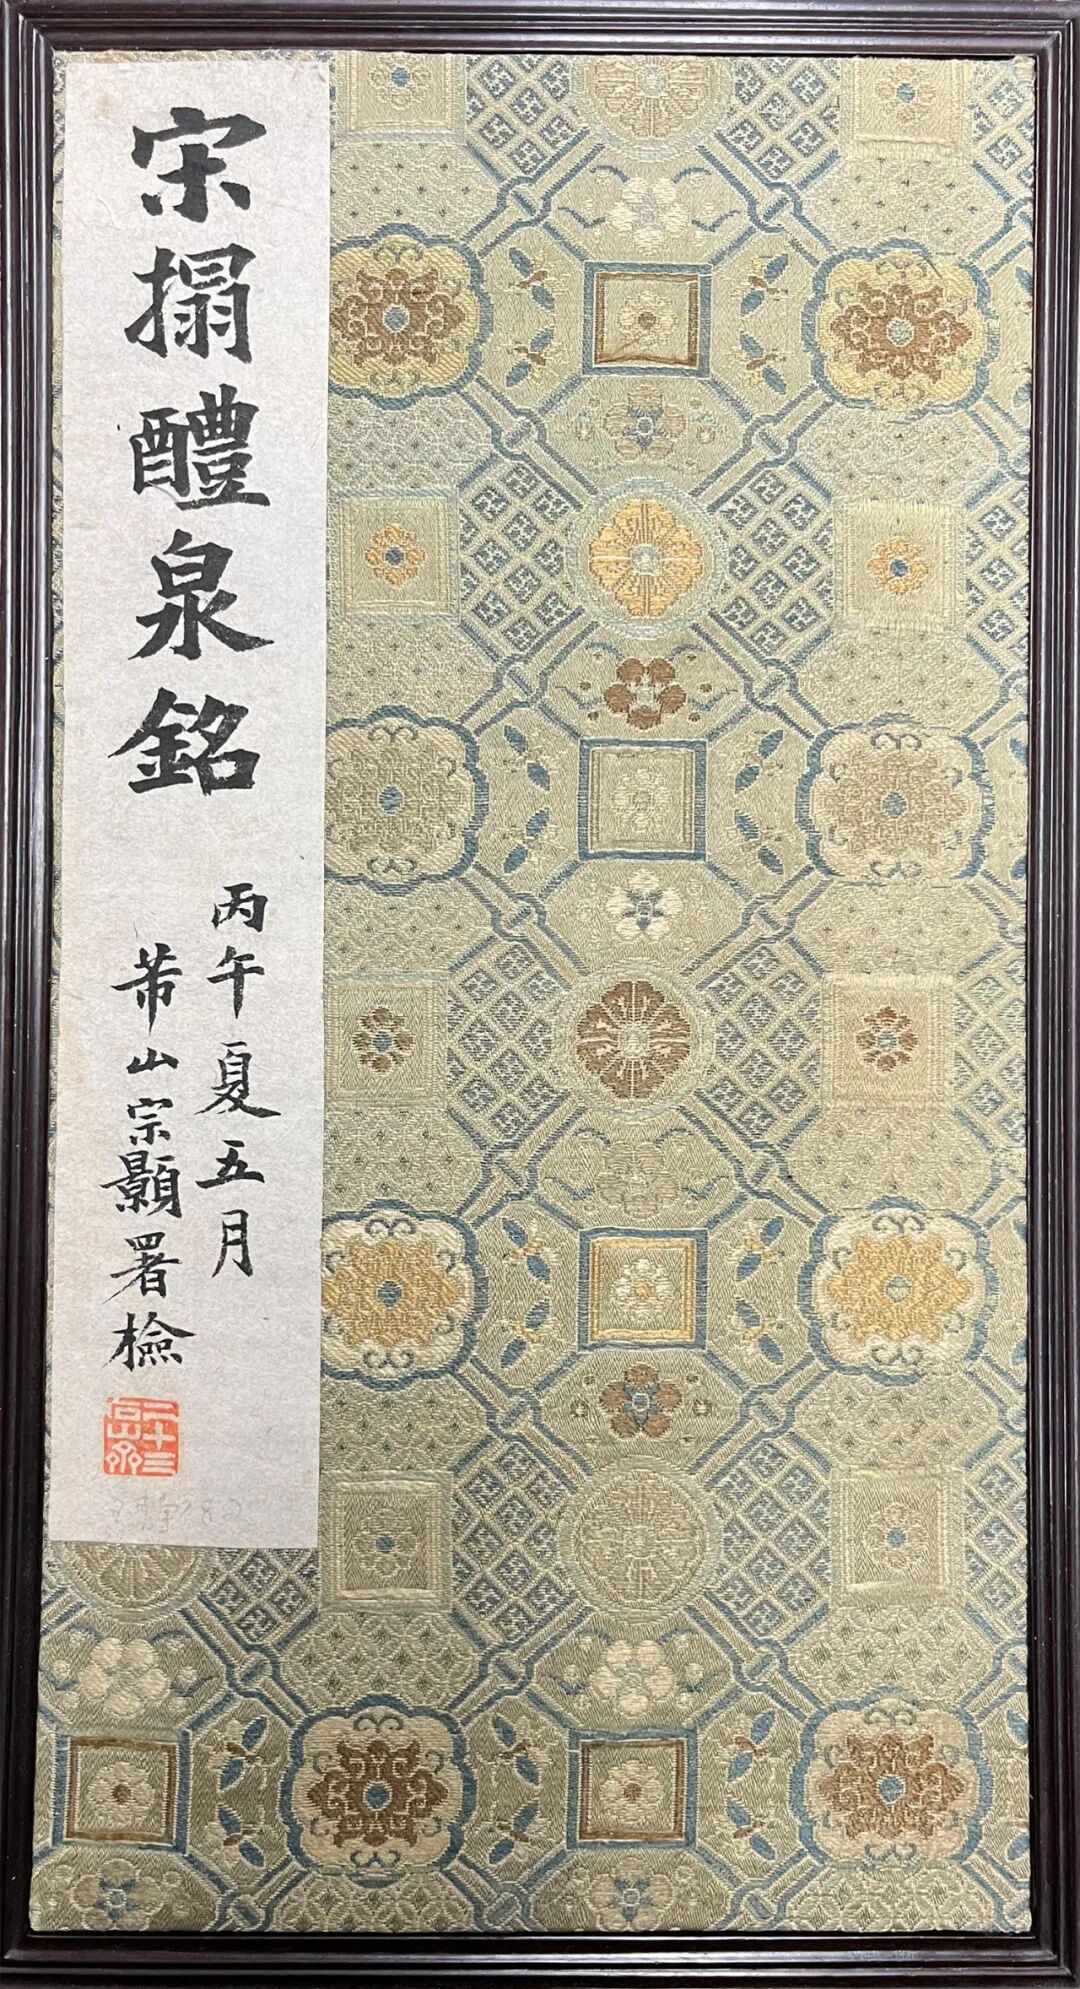 宋搨醴泉銘
丙午夏五月
芾山宗顥署檢